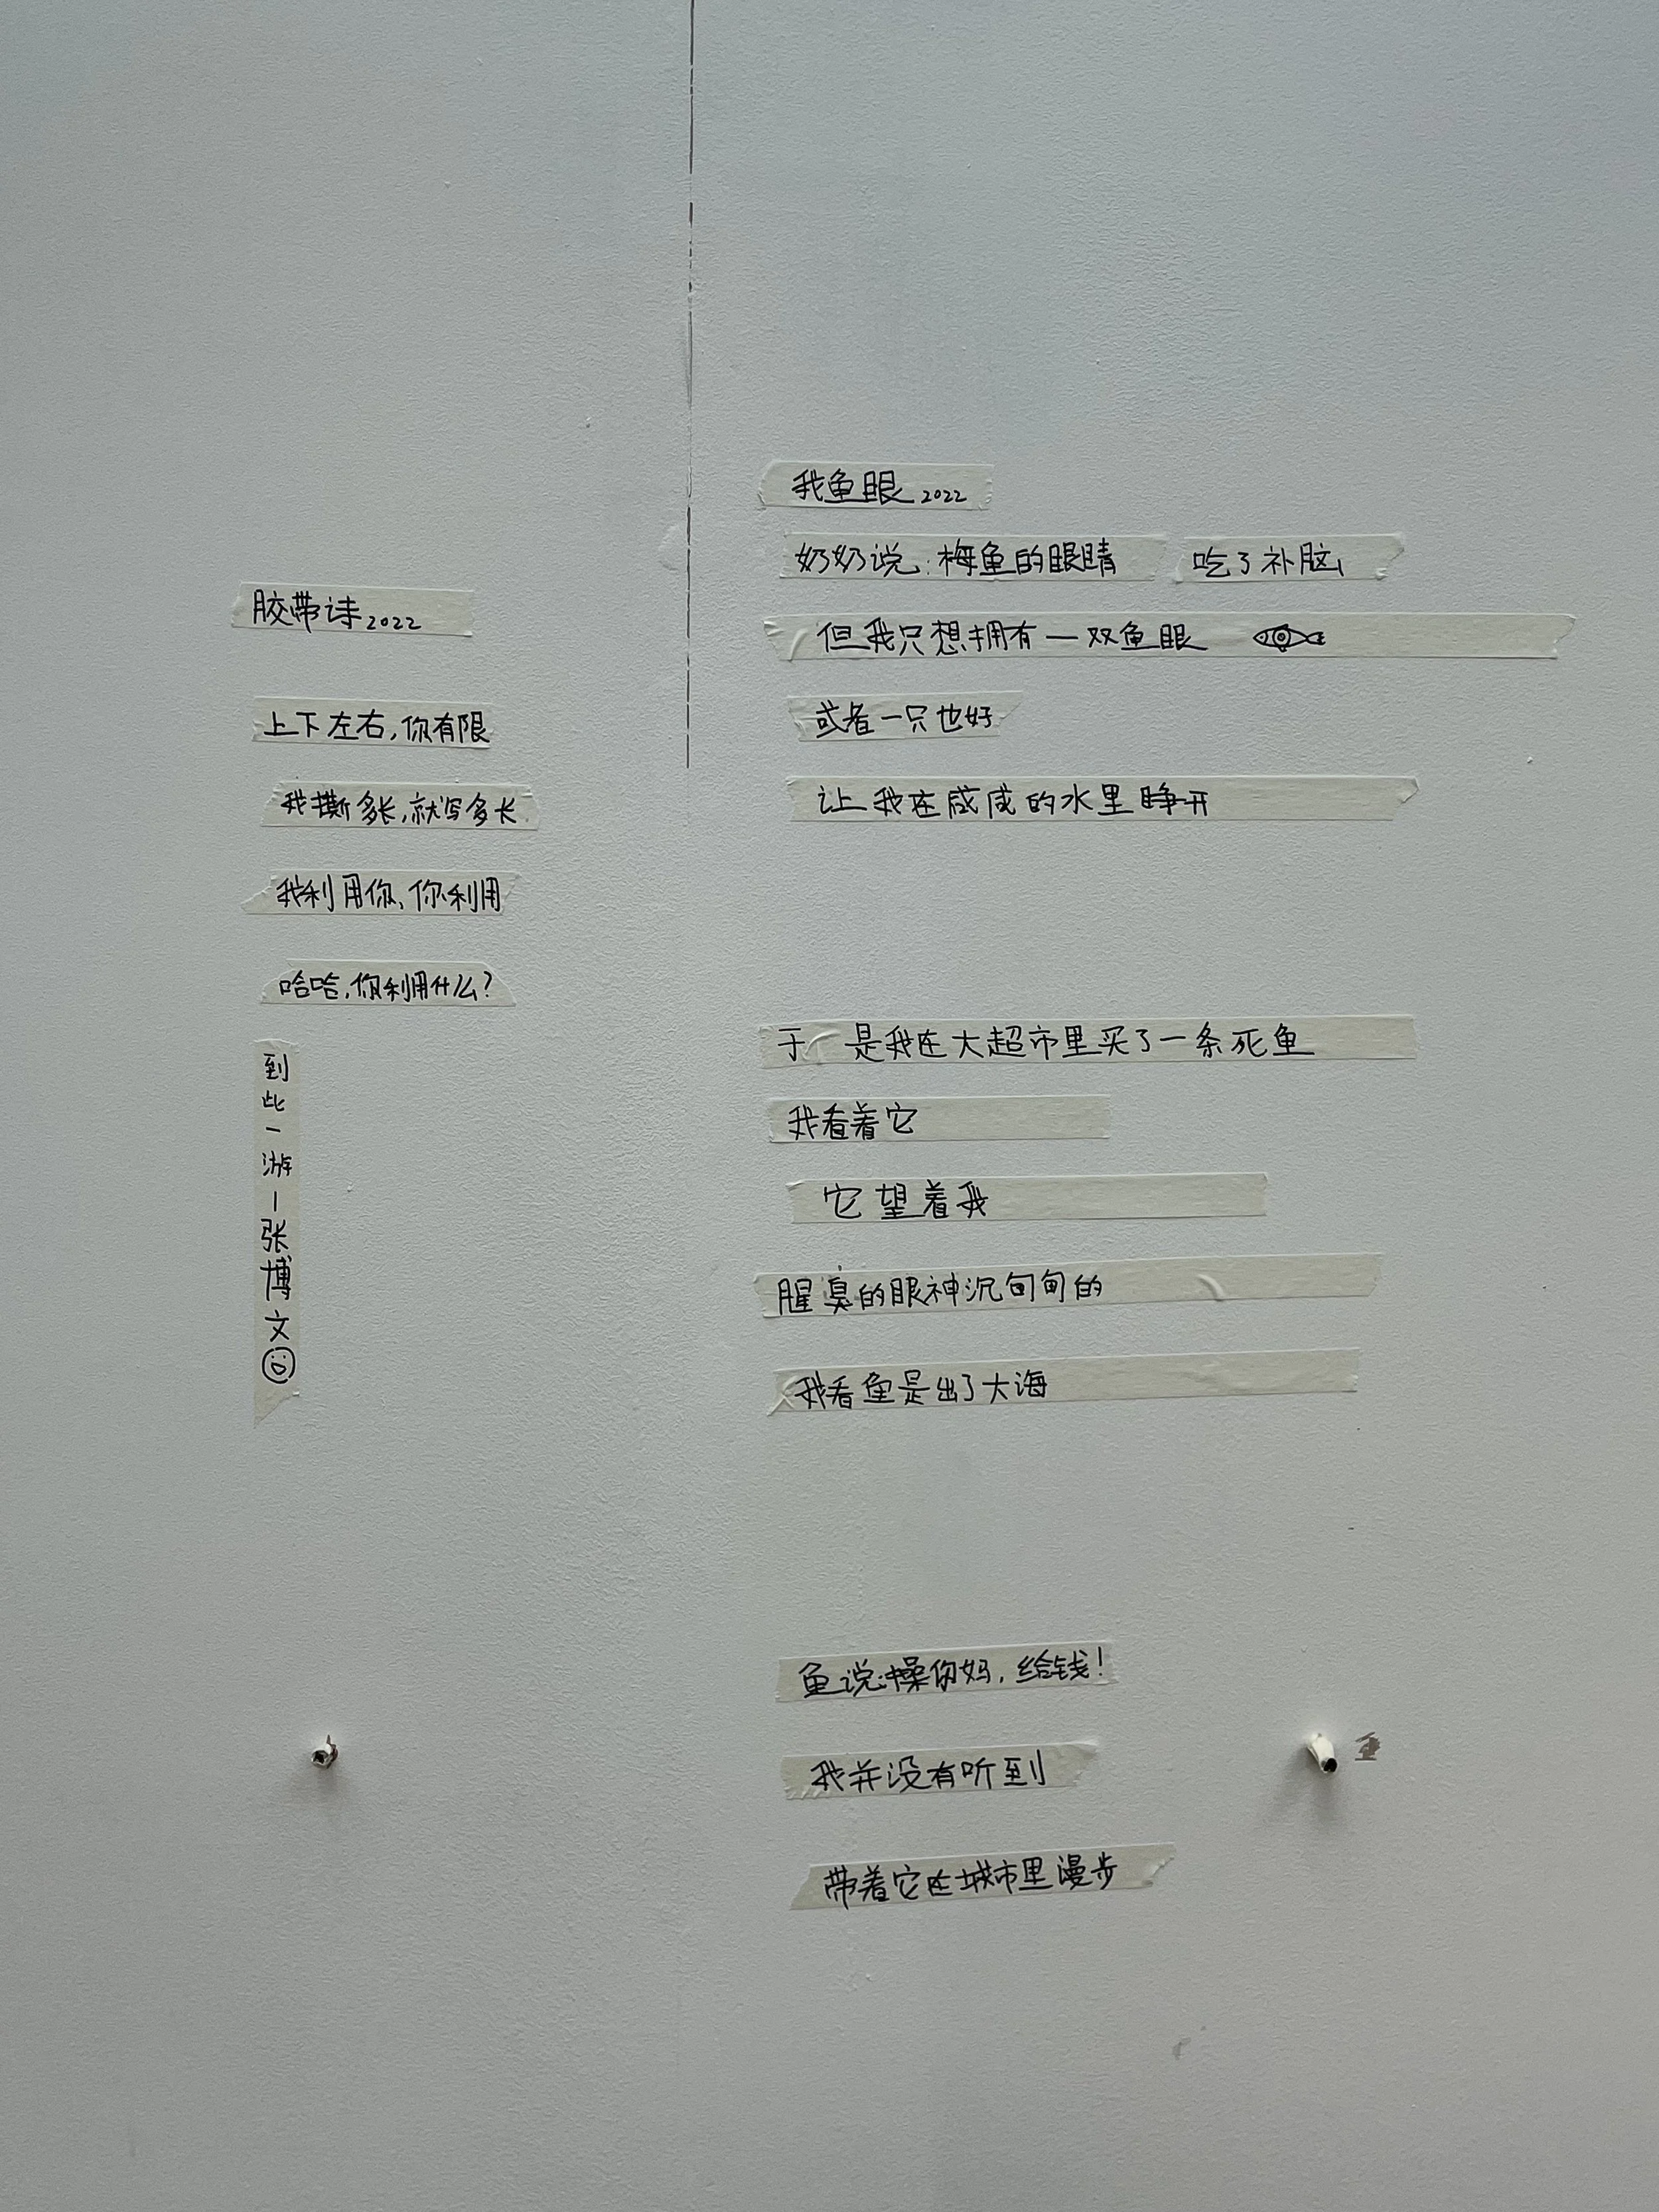 胶带诗2022
上下左右,你有限
我撕多长,就写多长
我利用你,你利用
哈哈,你利用什么?
到此一游—张博文
我鱼眼2022
奶奶说:梅鱼的眼睛 吃了补脑
但我只想拥有一双鱼眼
或者一只也好
让我在咸咸的水里睁开
于是我在大超市里买了一条死鱼
我看着它
它望着我
腥臭的眼神沉甸甸的
我看鱼是出了大海
鱼说:操你妈,给钱!
我并没有听到
带着它在城市里漫步